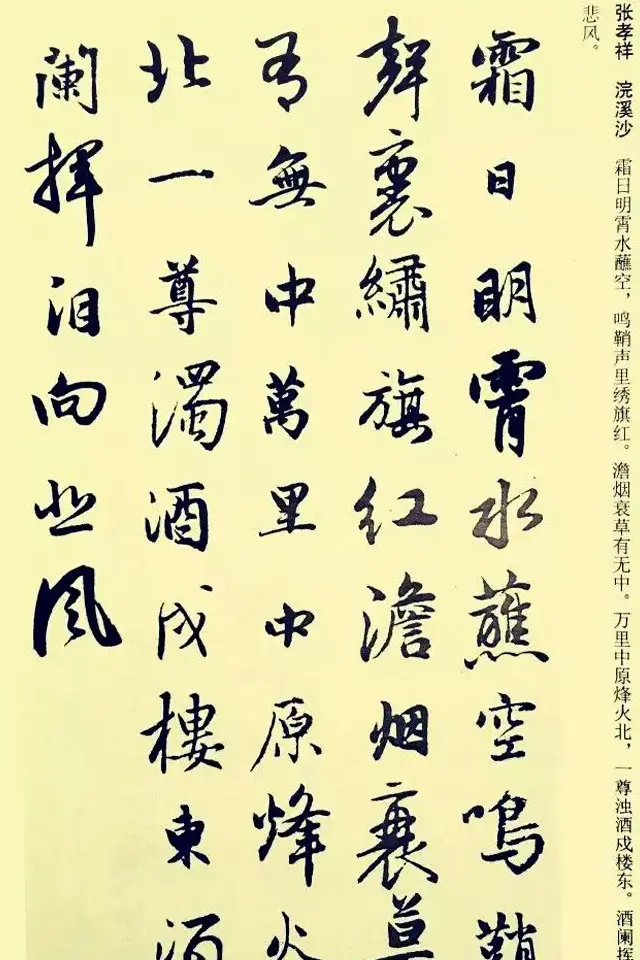 张孝祥 浣溪沙 霜日明霄水蘸空，鸣鞘声里绣旗红。澹烟衰草有无中。万里中原烽火北，一尊浊酒戍楼东。酒阑挥
悲风。
霜日明霄水蘸空鳴鞘
聲裏繡旗紅澹烟衰草
有無中萬里中原烽火
北一尊濁酒戍樓東酒
闌揮泪向悲風